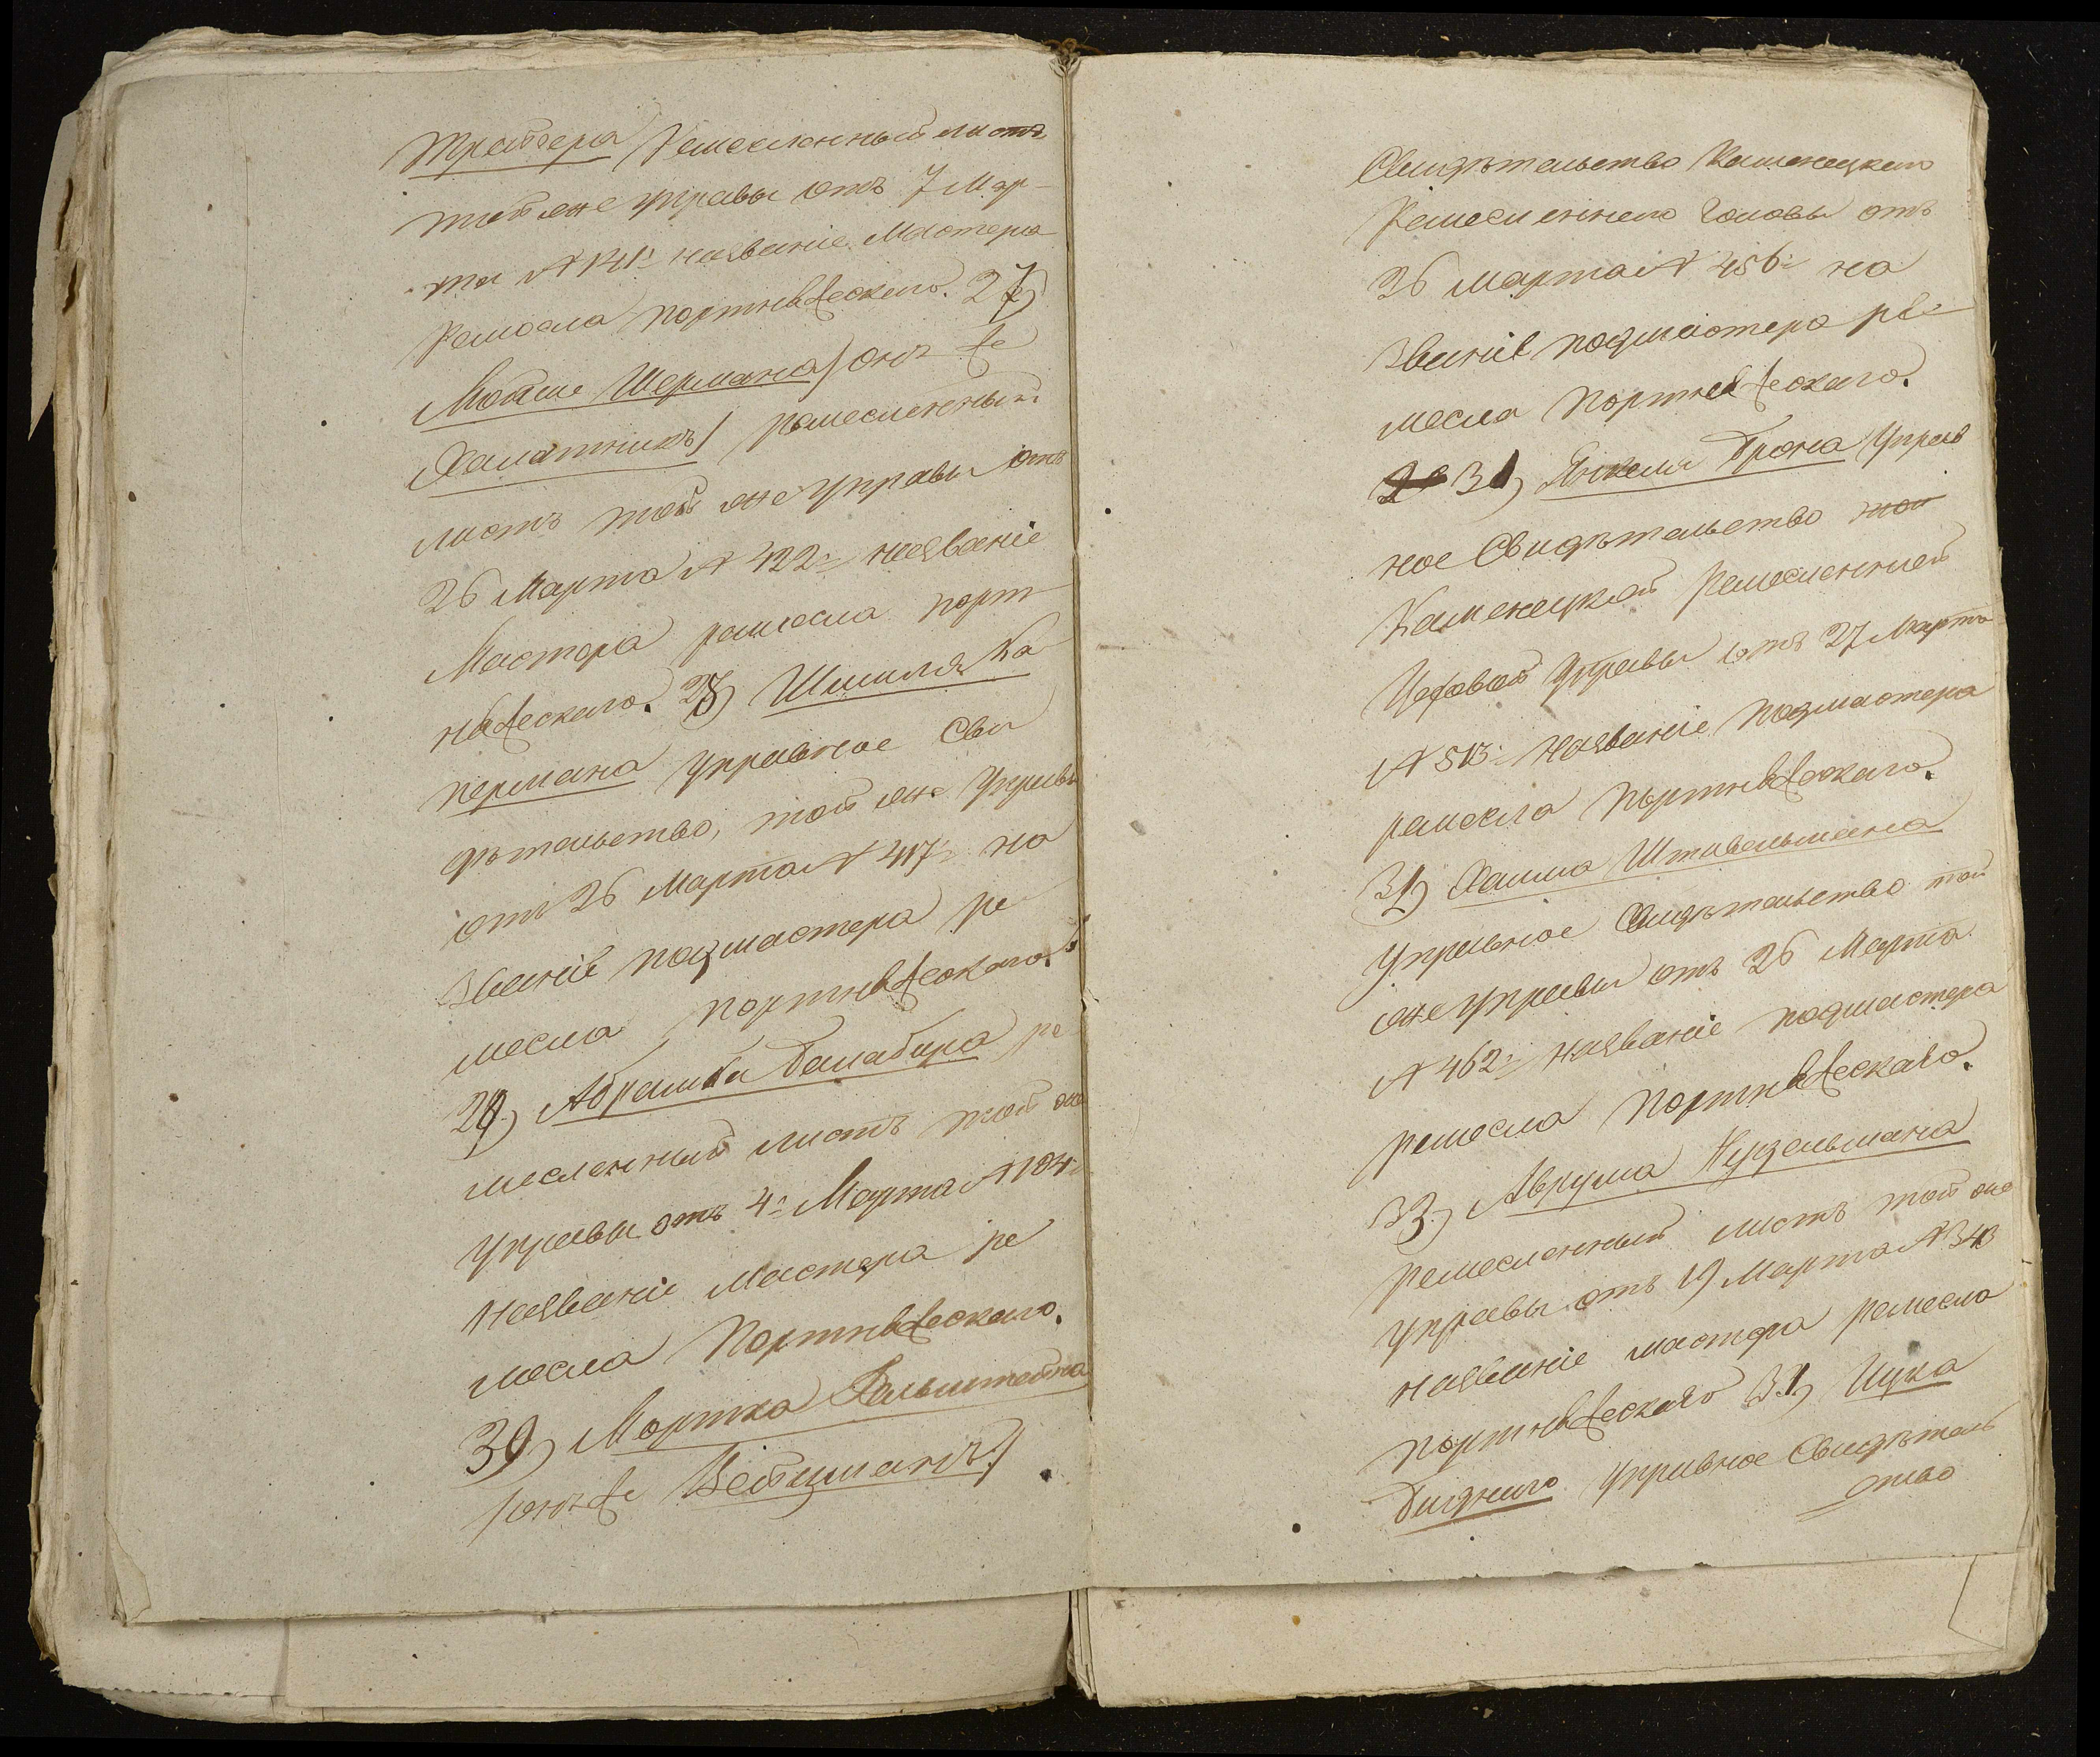 Трейгера Ремесленный листъ
той же управы отъ 7 Мар-
та № 141. на званіе Мастера
Ремесла портническаго. 27)
Мойше Шермана / онъ же
Халатникъ / ремесленный
листъ той же Управы отъ
26 Марта № 422. на званіе
Мастера ремесла порт-
ническаго. 28) Шмиля Ка
пермана управное Сви
дѣтельство, той же Управы
отъ 26 Марта № 417. на
званіе подмастера ре
месла портническаго.
29) Абрамка Балабира ре
месленный листъ той же
Управы отъ 4. Марта № 104.
на званіе Мастера ре
месла Портническаго.
30) Мортка Гальштейна
/ онъ же Вейцманъ /
Свидѣтельство Каменецкаго
Ремесленнаго Головы отъ
26 марта № 456. на
званіе подмастера ре-
месла Портническаго.
31) Янкеля Брона Управ
ное Свидѣтельство
Каменецкой Ремесленной
Цеховой Управы отъ 27 Марта
№ 513. на званіе Подмастера
ремесла Портническаго.
Хаима Штивельмана
Управное Свидѣтельство той
же Управы отъ 26 Марта
№ 462. на званіе подмастера
ремесла Портническаго.
33) Аврума Нудельмана
Ремесленный листъ той же
Управы отъ 19 Марта № 343
на званіе мастера ремесла
портническаго Ицка
Биднаго Управное Свидѣтель
ство